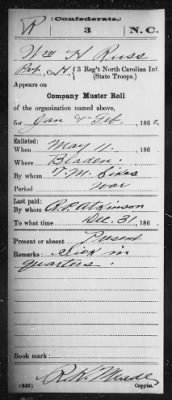 (Confederate.)
R 3 N.C.
Wm H Russ
Pvt, Co. H, 3 Reg't North Carolina Inf.
(State Troops.)
Appears on
Company Muster Roll
of the organization named above,
for Jan & Feb, 186
Enlisted:
When May 11, 186
Where Bladen
By whom T.M. Sikes
Period war
Last paid:
By whom R.P. Atkinson
To what time Dec. 31, 186
Present or absent Present
Remarks: Sick in
quarters.
Book mark:
(642) R.H. Copyist.